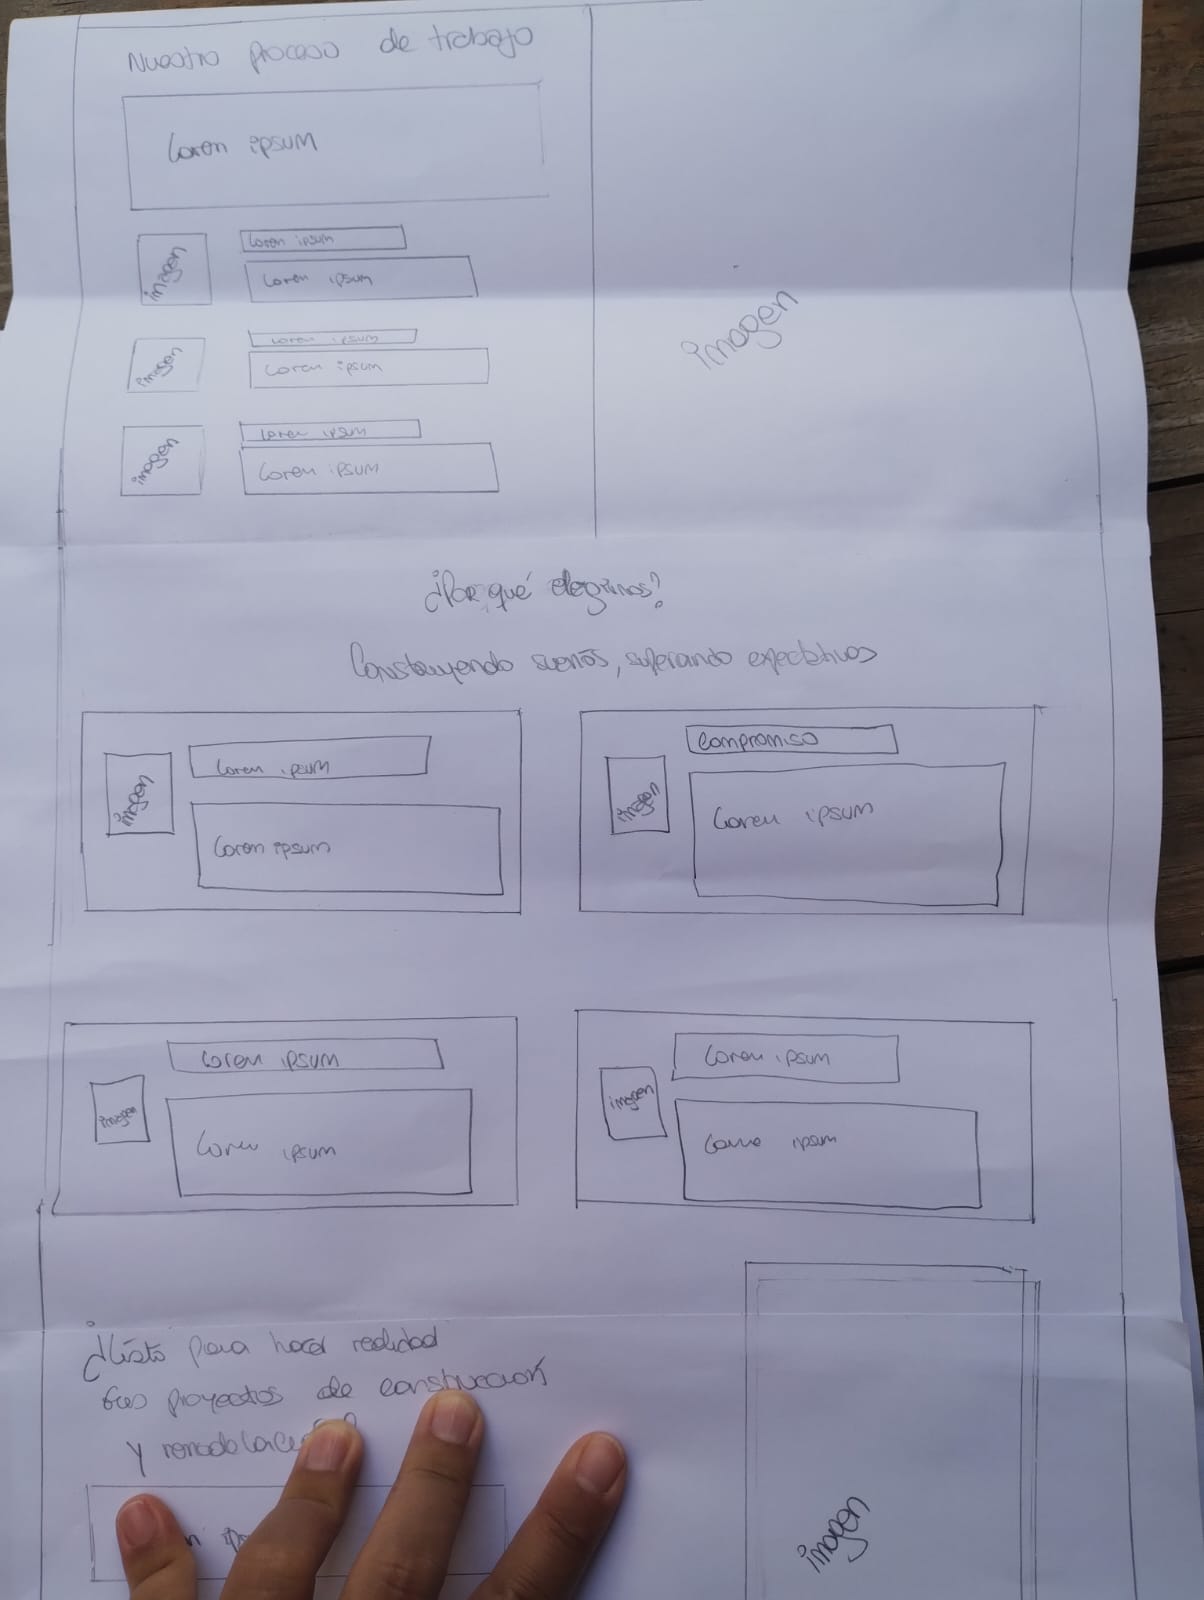 Nuestro proceso de trabajo
Loren ipsum
imagen
Loren ipsum
Loren ipsum
imagen
Loren ipsum
Loren ipsum
imagen
Loren ipsum
Loren ipsum
imagen
¿Por qué elegirnos?
Construyendo sueños, superando expectativas
imagen
Loren ipsum
Loren ipsum
imagen
Compromiso
Loren ipsum
imagen
Loren ipsum
Loren ipsum
imagen
Loren ipsum
ipsum
¿Listo para hacer realidad
tus proyectos de construcción
y
imagen